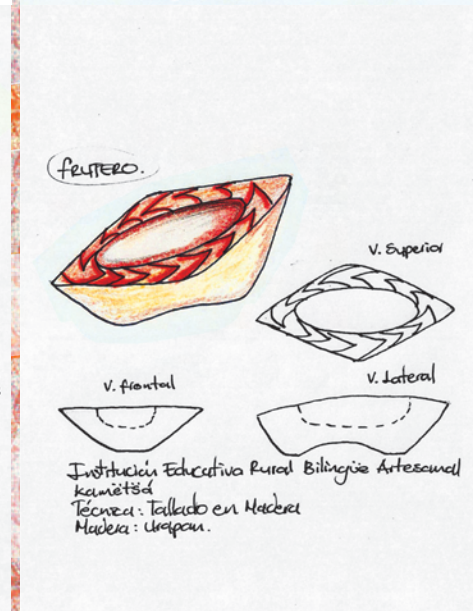 FRUTERO.
V. Superior
V. frontal
V. Lateral
Institución Educativa Rural Bilingüe Artesanal
Kamëtšá
Técnica: Tallado en Madera
Madera: Urapan.